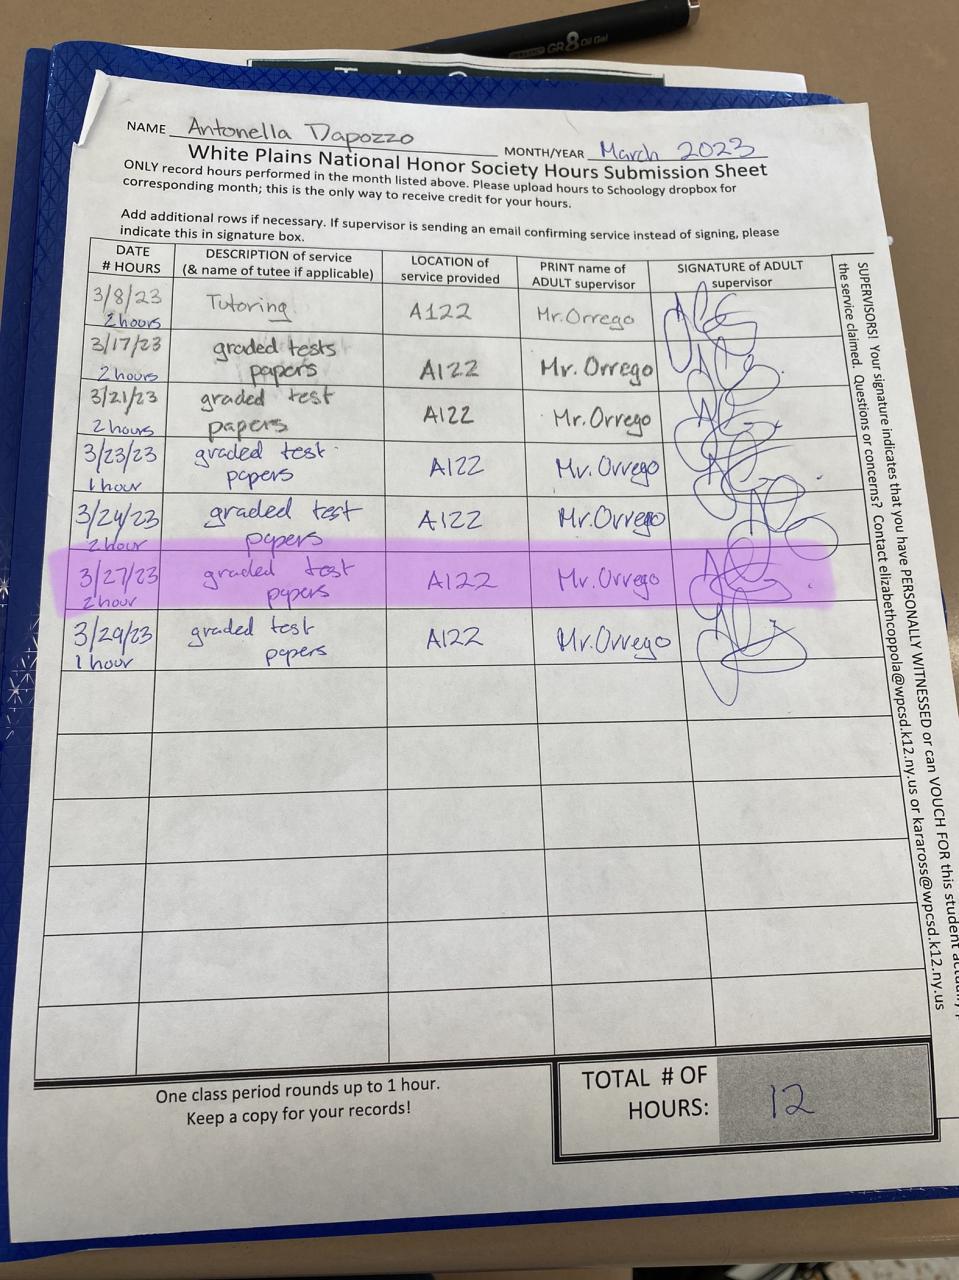 GR8 Oil Gel
NAME Antonella Dapozzo MONTH/YEAR March 2023
White Plains National Honor Society Hours Submission Sheet
ONLY record hours performed in the month listed above. Please upload hours to Schoology dropbox for
corresponding month; this is the only way to receive credit for your hours.
Add additional rows if necessary. If supervisor is sending an email confirming service instead of signing, please
indicate this in signature box.
DATE
# HOURS
DESCRIPTION of service
(& name of tutee if applicable)
LOCATION of
service provided
PRINT name of
ADULT supervisor
SIGNATURE of ADULT
supervisor
3/8/23
2 hours
Tutoring
A122
Mr. Orrego
3/17/23
2 hours
graded tests
papers
A122
Mr. Orrego
3/21/23
2 hours
graded test
papers
A122
Mr. Orrego
3/23/23
1 hour
graded test
papers
A122
Mr. Orrego
3/24/23
2 hour
graded test
papers
A122
Mr. Orrego
3/27/23
2 hour
graded test
papers
A122
Mr. Orrego
3/29/23
1 hour
graded test
papers
A122
Mr. Orrego
SUPERVISORS! Your signature indicates that you have PERSONALLY WITNESSED or can VOUCH FOR this student
the service claimed. Questions or concerns? Contact elizabethcoppola@wpcsd.k12.ny.us or karaross@wpcsd.k12.ny.us
One class period rounds up to 1 hour.
Keep a copy for your records!
TOTAL # OF
HOURS:
12